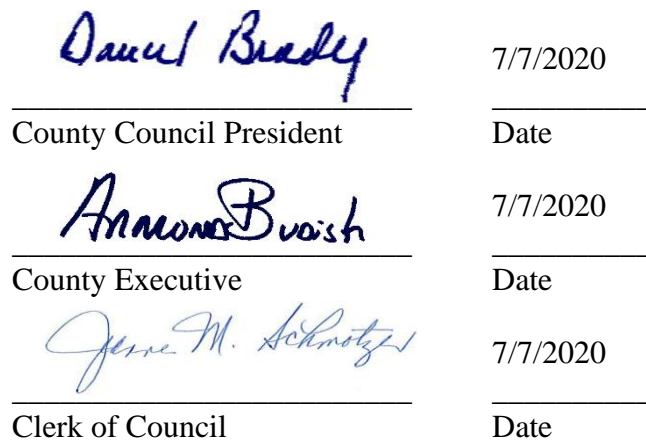 Daniel Brady 7/7/2020
County Council President Date
Armond Budish 7/7/2020
County Executive Date
Jeanne M. Schmotzer 7/7/2020
Clerk of Council Date